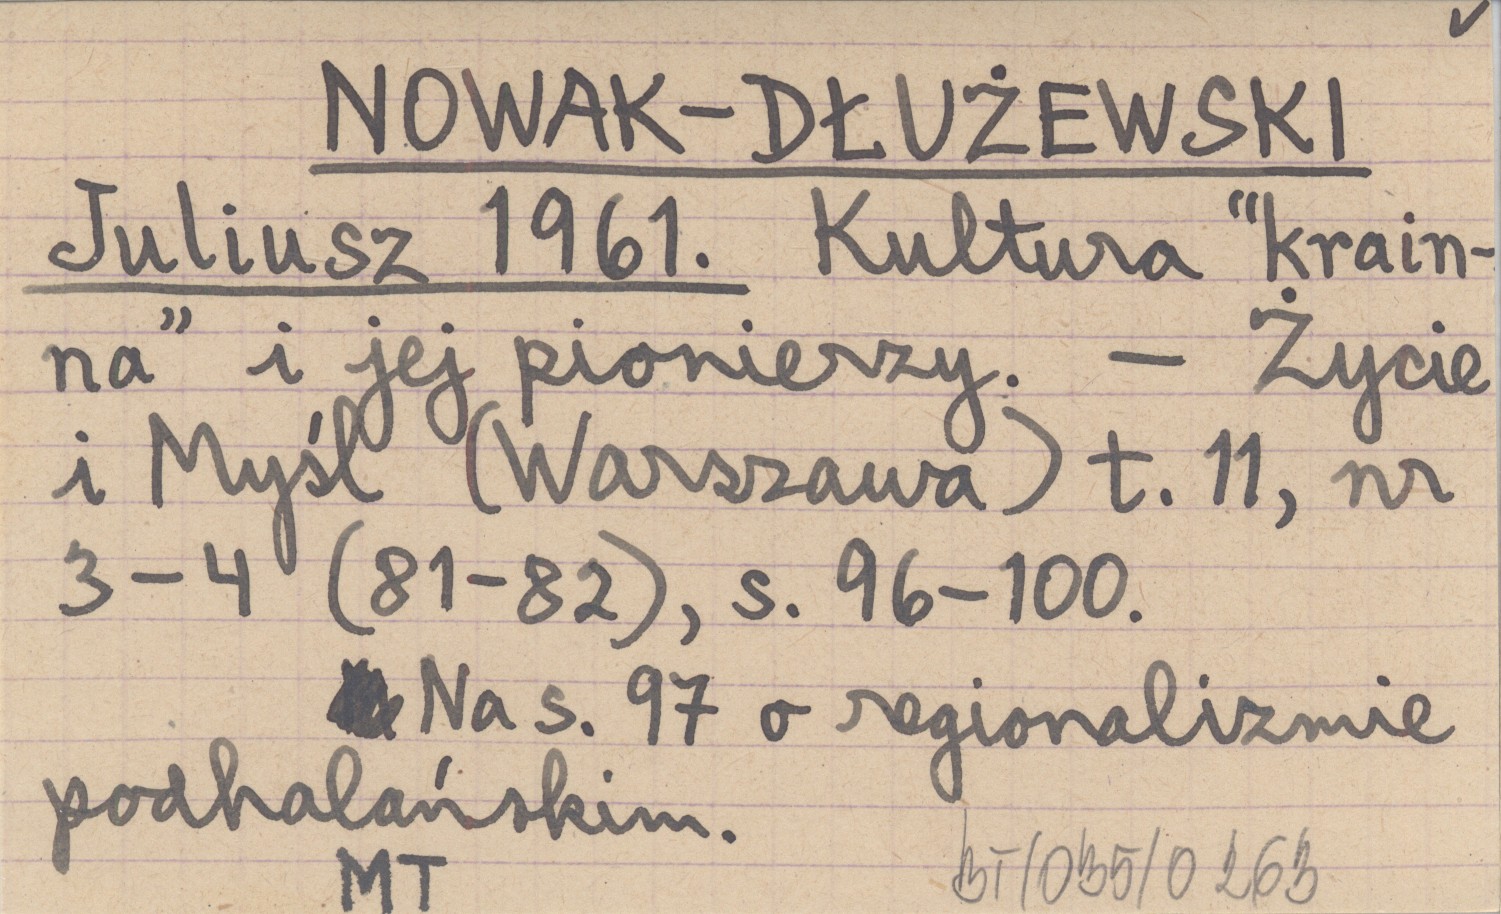 ✓
NOWAK-DŁUŻEWSKI
Juliusz 1961. Kultura "krain-
na" i jej pionierzy. — Życie
i Myśl (Warszawa) t. 11, nr
3-4 (81-82), s. 96-100.
Na s. 97 o regionalizmie
podhalańskim.
MT
BT/035/0263